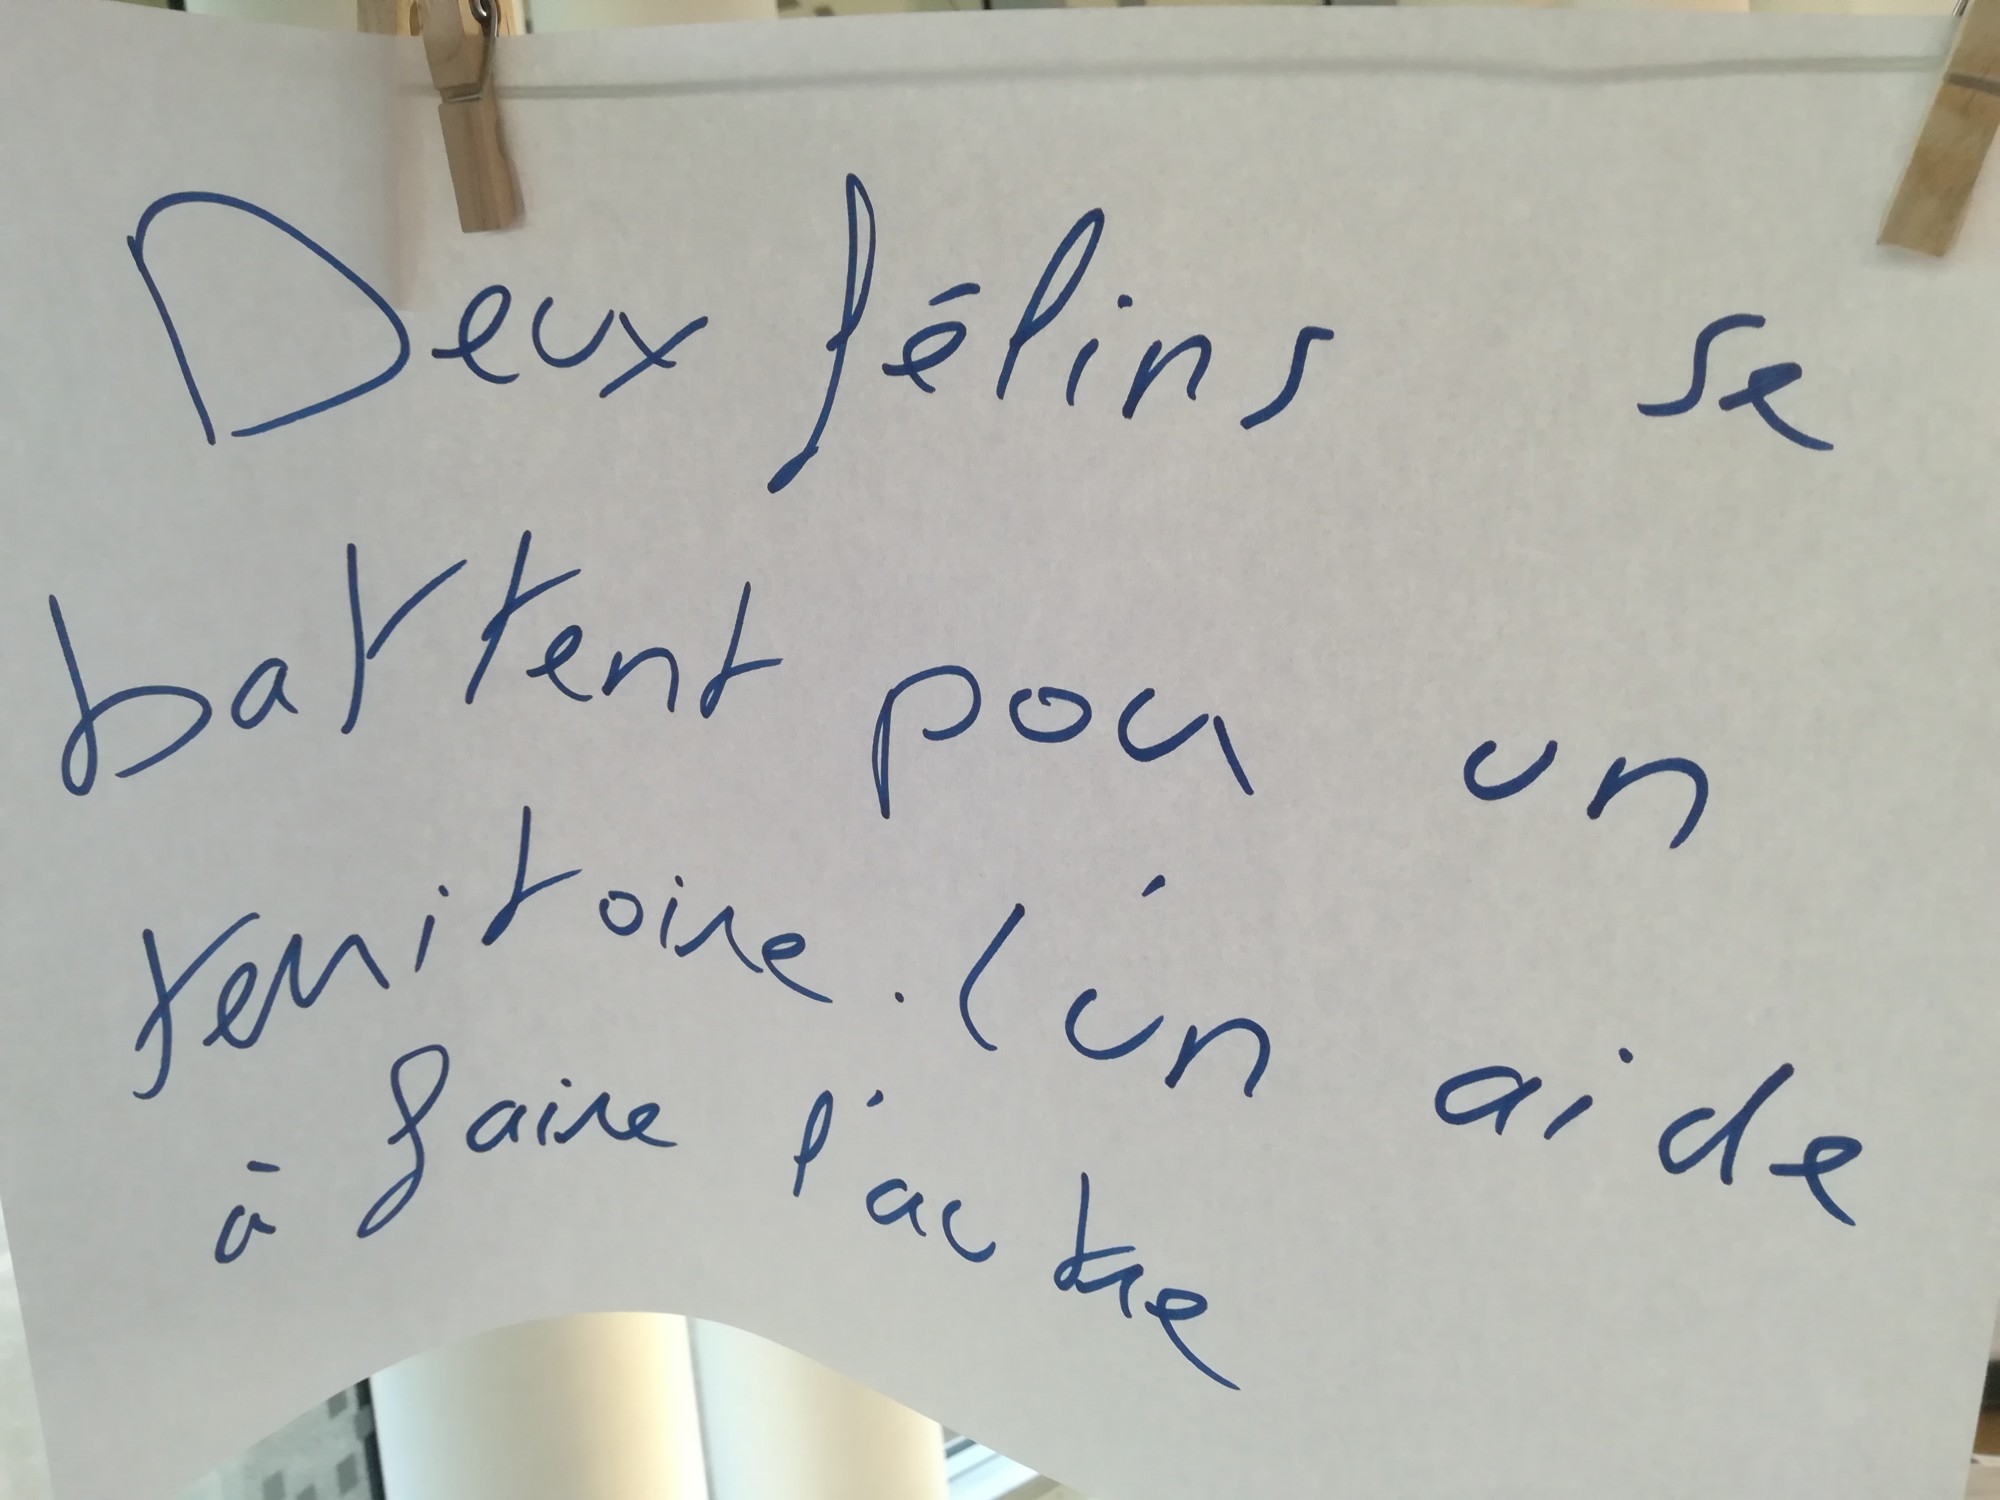 Deux félins se
battent pour un
territoire. l'un aide
à faire l'autre